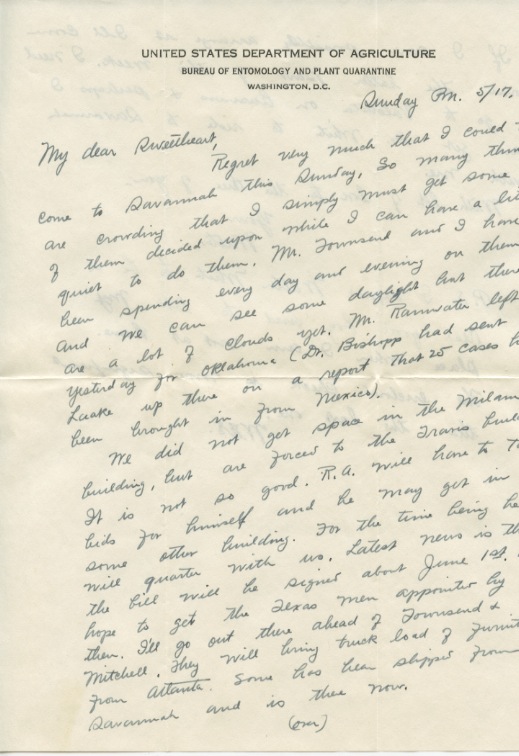 UNITED STATES DEPARTMENT OF AGRICULTURE
BUREAU OF ENTOMOLOGY AND PLANT QUARANTINE
WASHINGTON, D.C.
Sunday P.M. 5/17.
My dear Sweetheart,
Regret very much that I could
come to Savannah this Sunday. So many thin
are crowding that I simply must get some
of them decided upon while I can have a
quiet to do them. Mr. Townsend and I have
been spending every day and evening on them
and we can see some daylight but there
are a lot of clouds yet. Mr. left
yesterday for Oklahoma (Dr. Bishopp had sent
Laake up there on a report that 25 cases
been brought in from Mexico).
We did not get space in the Milam
building, but are forced to the Travis buil
It is not so good. R.A. will have to
bids for himself and he may get in
some other building. For the time being he
will quarter with us. Latest news is th
the bill will be signed about June 1st.
hope to get the Texas men appointed by
then. I'll go out there ahead of Townsend &
Mitchell. They will bring truck load of furnit
from Atlanta. Some has been shipped from
Savannah and is there now.
(over)